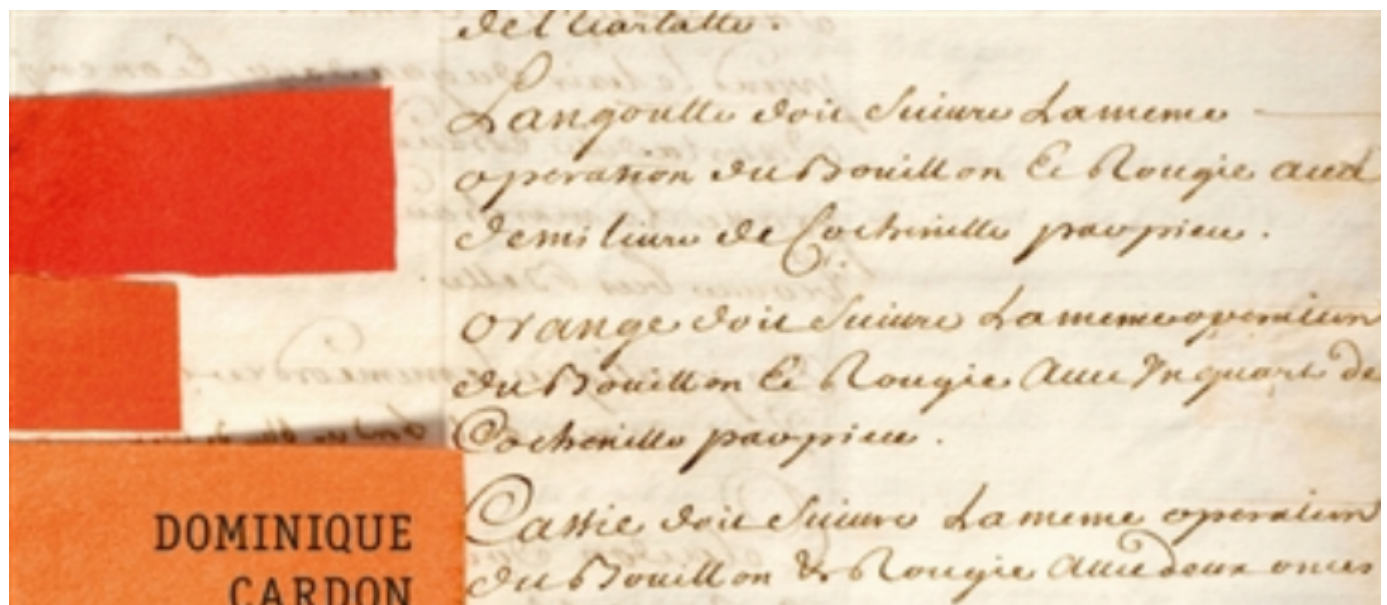 de l'Ecarlatte.
Langoutte doit Suivre La meme
operation du Bouillon & Rougie avec
demi livre de Cochenille par piece.
Orange doit Suivre La meme operation
du Bouillon & Rougie avec Un quart de
Cochenille par piece.
Cassie doit Suivre La meme operation
du Bouillon & Rougie avec deux onces
DOMINIQUE
CARDON